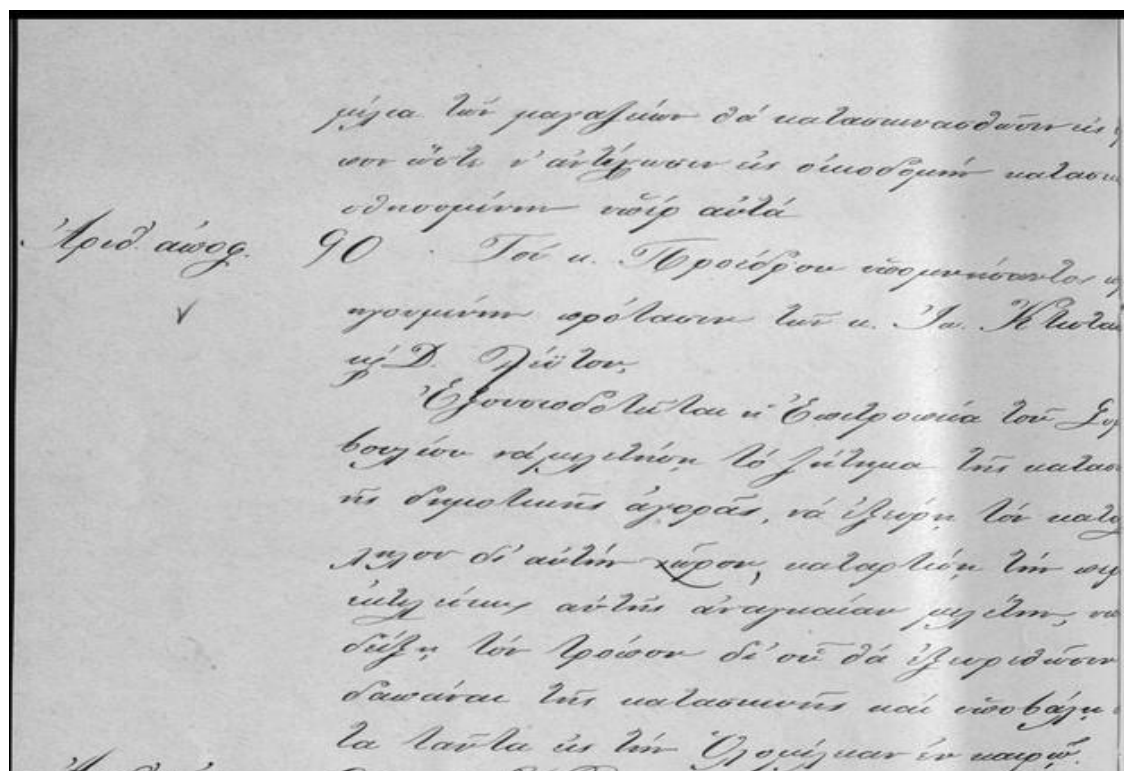 μέλια τῶν μαγαζείων θά κατασκευασθῶσιν εἰς
πον ὥστε ν' ἀντέχωσιν εἰς οἰκοδομήν κατασκ
σθησομένην ὑπέρ αὐτά
Ἀριθ. ἀποφ. 90 Τοῦ κ. Προέδρου ὑπομνήσαντος
ηγουμένην πρότασιν τῶν κ. Ἰω. Κτιστά
καί Δ.
Ἐξουσιοδοτεῖται ἡ Ἐπιτροπεία τοῦ Συμ
βουλίου νά μελετήσῃ τό ζήτημα τῆς κατασ
τῆς δημοτικῆς ἀγορᾶς, νά ἐξεύρῃ τόν κατάλ
ληλον δι' αὐτήν χῶρον, καταρτίσῃ τήν περ
ἐκτελέσεως αὐτῆς ἀναγκαίαν μελέτην, να
δείξῃ τόν τρόπον δι' οὗ θά ἐξευρεθῶσιν
δαπάναι τῆς κατασκευῆς καί ὑποβάλῃ
τα ταῦτα εἰς τήν Ὁλομέλειαν ἐν καιρῷ.